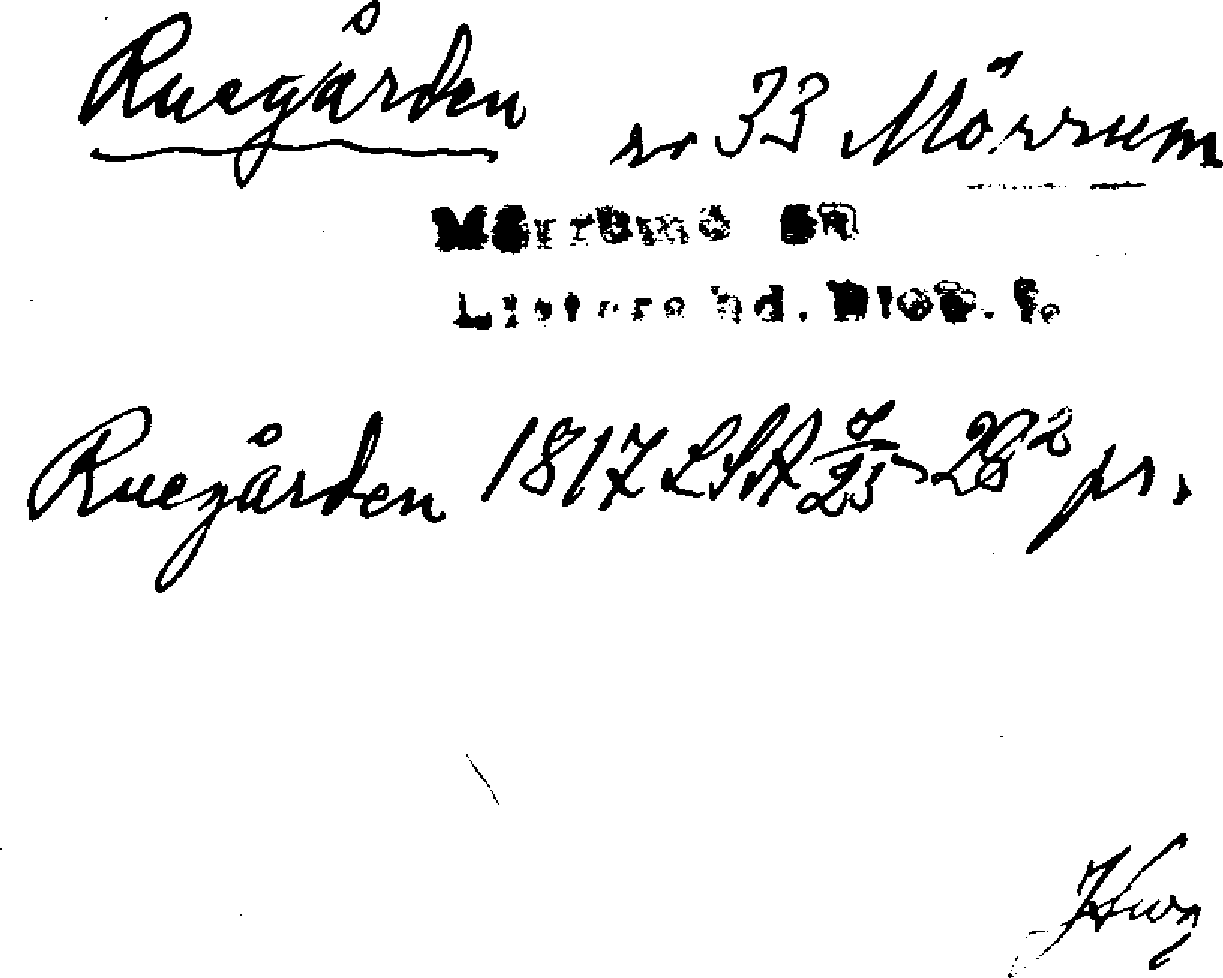 Ruegården nr 33 Mörrum
Mörrums sn
Listers hd. Blek. l.
Ruegården 1817 LSA 25 28² pr.